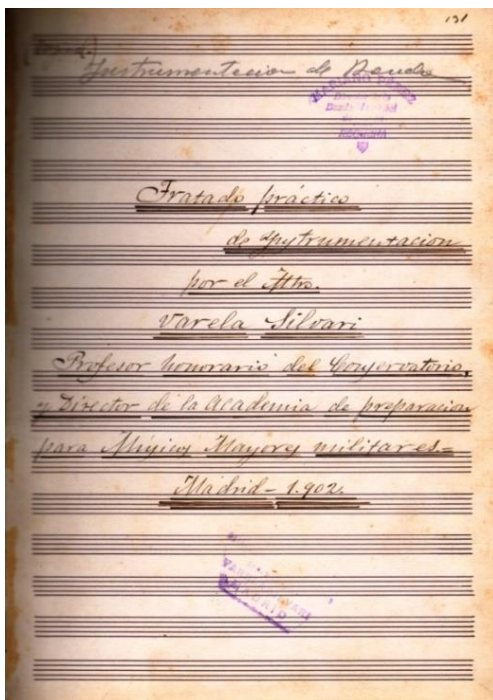 131
Instrumentacion de Banda
MARIANO PÉREZ
Tratado práctico
de Instrumentacion
por el Mtro.
Varela Silvari
Profesor honorario del Conservatorio,
y Director de la Academia de preparacion
para Músicos Mayores militares=
Madrid - 1.902.
VARELA SILVARI
MADRID